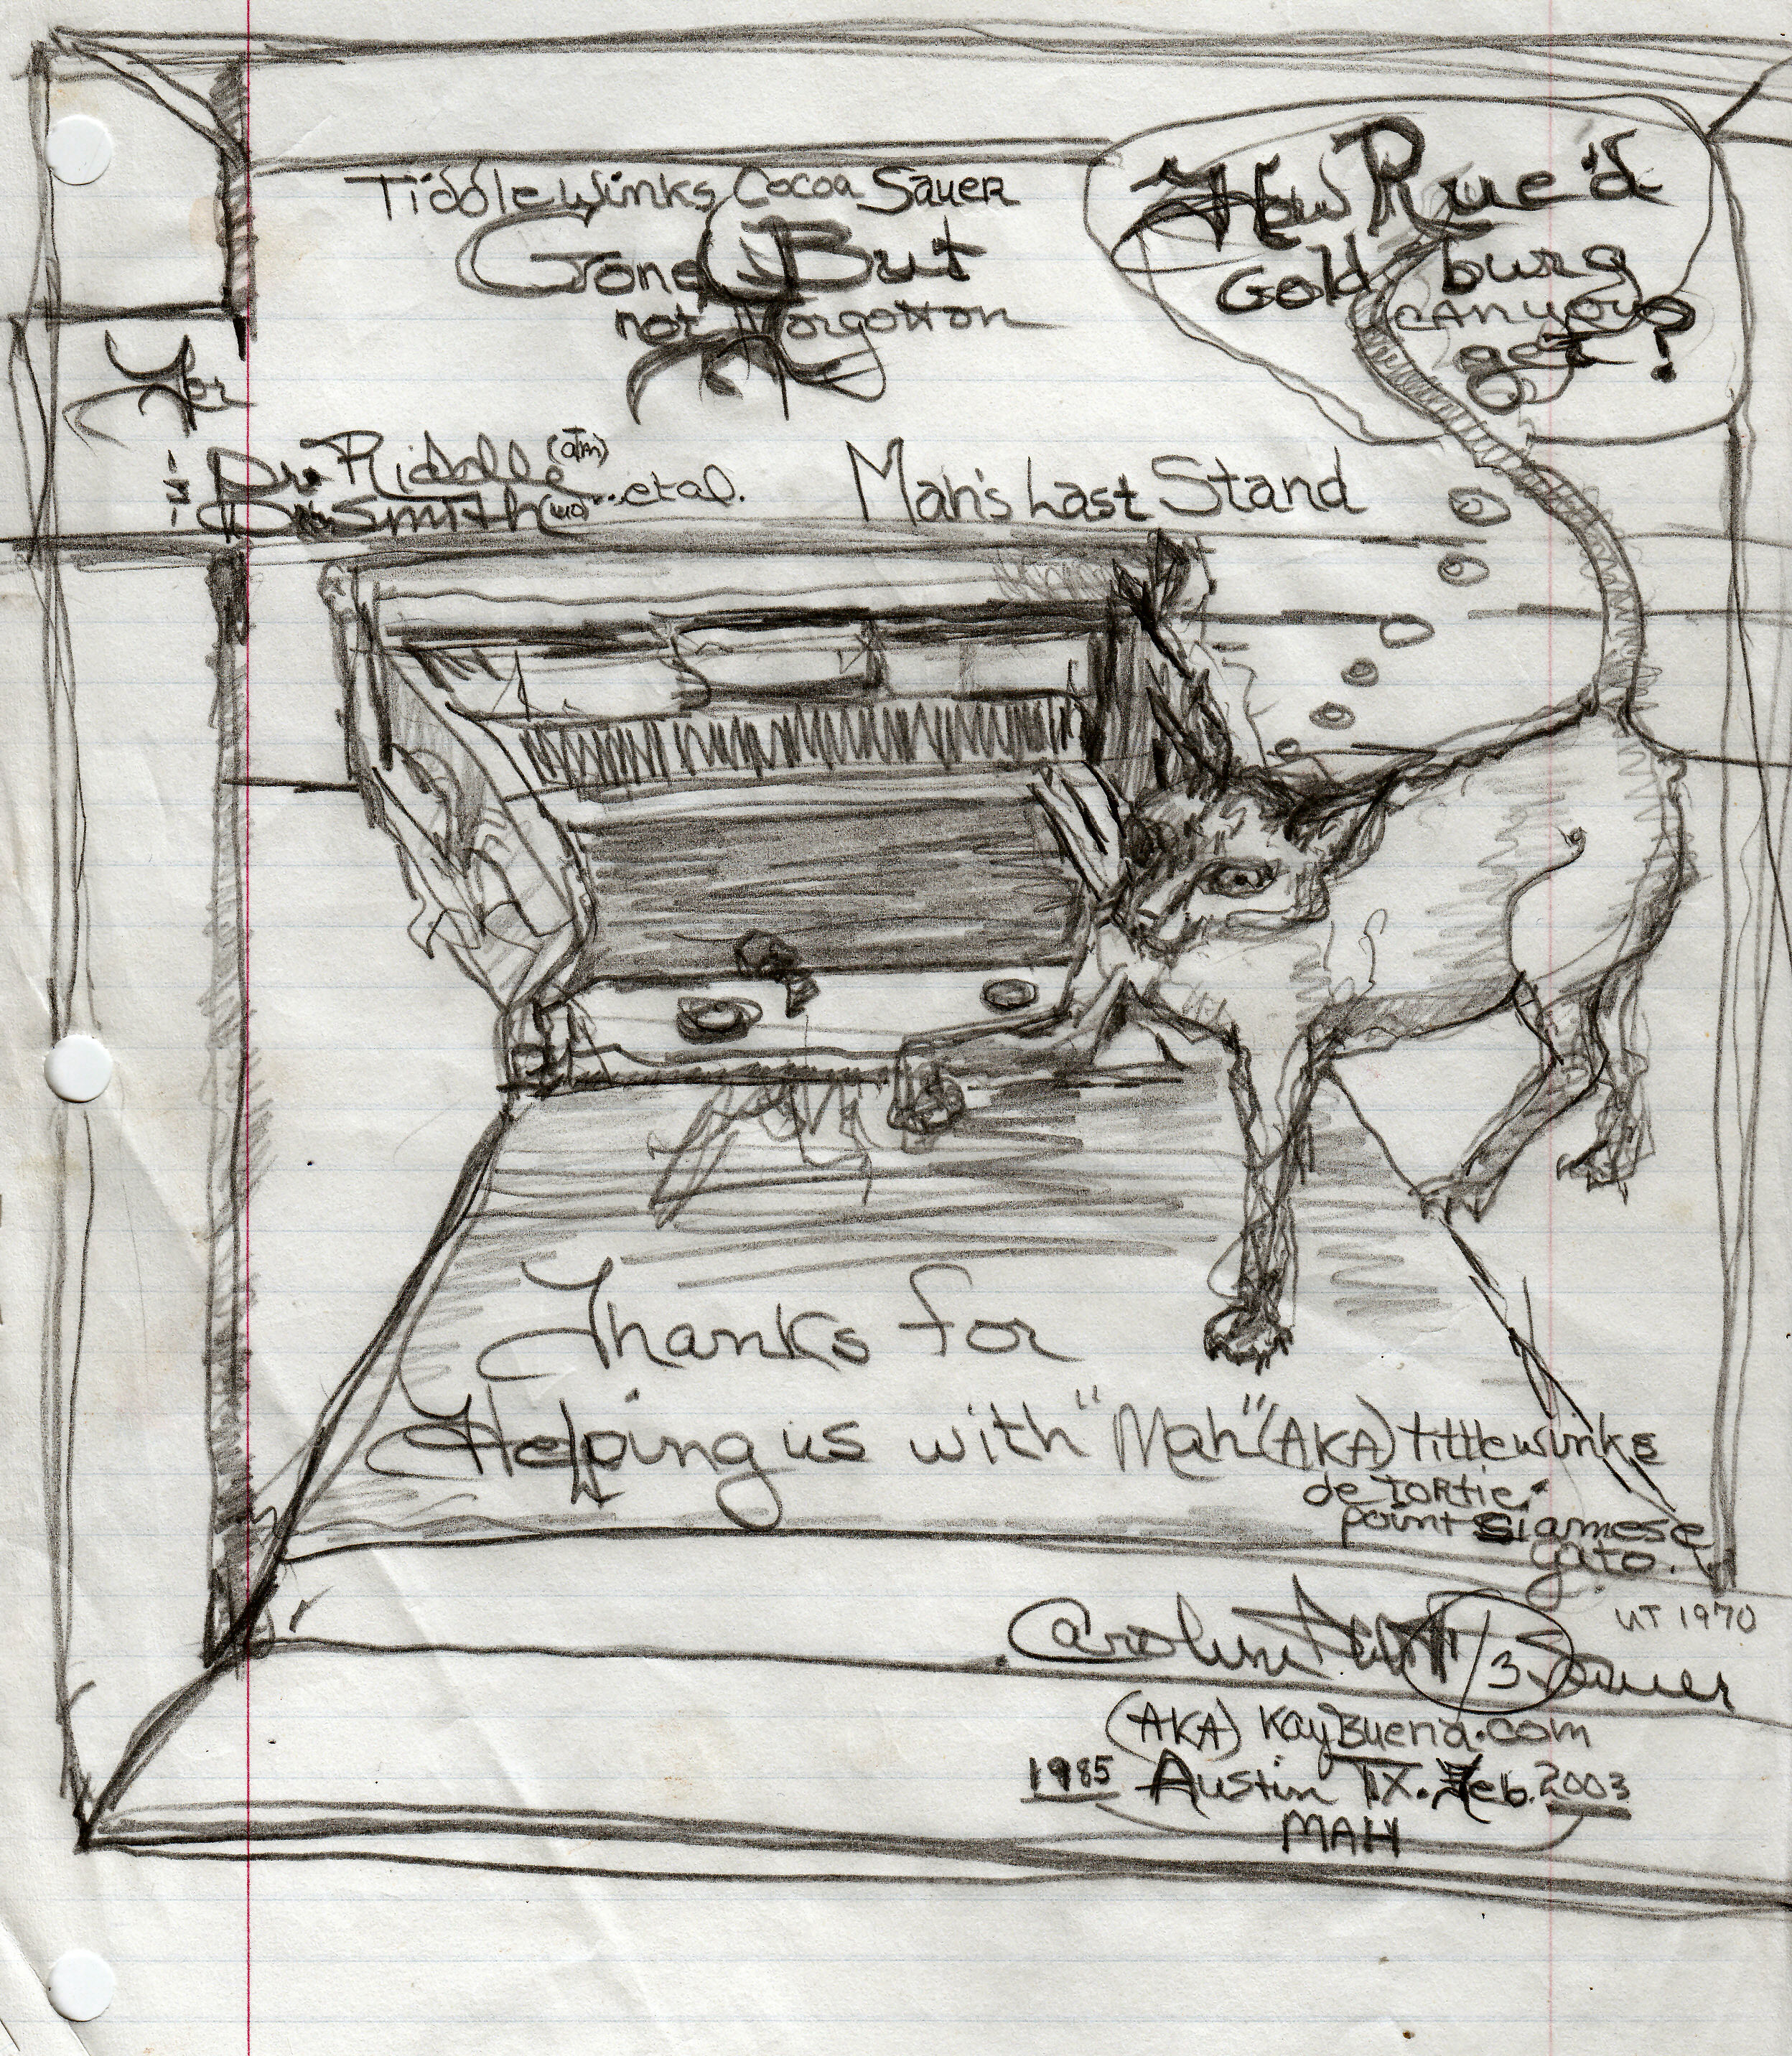 Tiddlewinks Cocoa Sauer
Gone But
not Forgotton
How Rue'd
Gold burg
can you
get?
For
Dr. Riddle
Dr. Smith ... etal.
Mah's Last Stand
Thanks for
Helping us with "Mah" (AKA) tittlewinks
de tortie
point Siamese
gato.
UT 1970
Caroline 1/3 Sauer
(AKA) KayBuena.com
1985 Austin TX. Feb. 2003
MAH